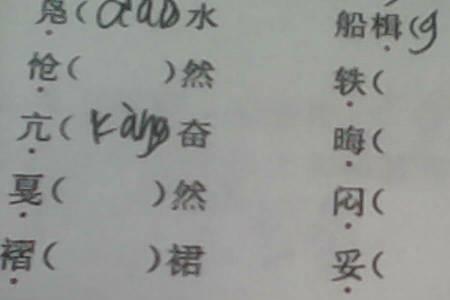 凫( 水 船楫(
怆( )然 铁(
亢(kàng 奋 晦(
戛( )然 闷(
褶( )裙 妥(